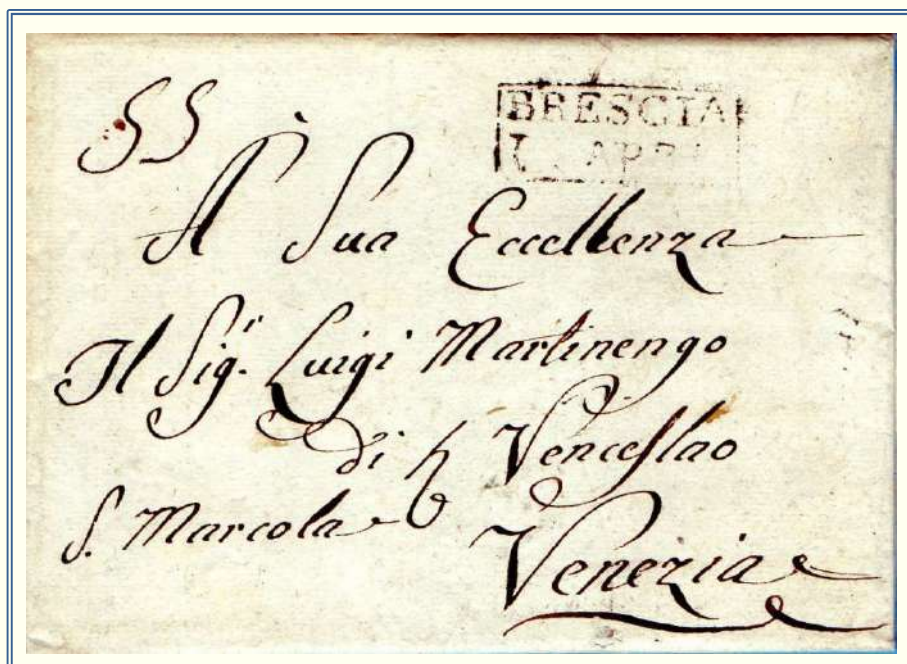 BRESCIA
A Sua Eccellenza
Il Sig.r Luigi Martinengo
di Venceslao
S. Marcola
Venezia